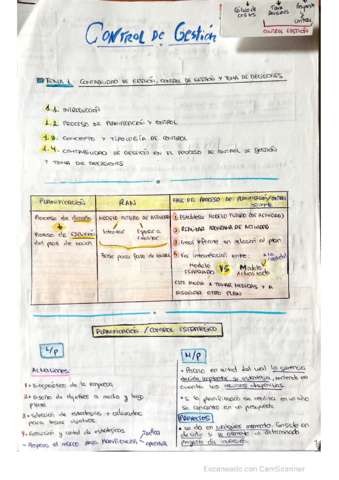 Cálculo de costes
Toma decisiones
Presupuesto y control
CONTROL GESTIÓN
CONTROL DE GESTIÓN
TEMA 1. CONTABILIDAD DE GESTIÓN, CONTROL DE GESTIÓN Y TOMA DE DECISIONES
1.1. INTRODUCCIÓN
1.2. PROCESO DE PLANIFICACIÓN Y CONTROL
1.3. CONCEPTO Y TIPOLOGÍA DE CONTROL
1.4. CONTABILIDAD DE GESTIÓN EN EL PROCESO DE CONTROL DE GESTIÓN
Y TOMA DE DECISIONES
PLANIFICACIÓN
PLAN
FASE DEL PROCESO DE PLANIFICACIÓN/CONTROL
Proceso de diseño
Proceso de EJECUCIÓN
del plan de acción
MODELO FUTURO DE ACTIVIDAD
Intentar
Esperar a
Base para fase de acción
1. Establecer MODELO FUTURO (DE ACTIVIDAD)
2. REALIZAR PROGRAMA DE ACTIVIDAD
3. Emitir informe en relación al plan
4. Ver interrelación entre:
Modelo
ESPERADO
VS
Modelo
Actual
ESTO AYUDA A TOMAR MEDIDAS Y A
ASEGURAR OTRO PLAN
PLANIFICACIÓN / CONTROL ESTRATÉGICO
L/P
Actuaciones
1. Diagnóstico de la empresa
2. Diseño de objetivos a medio y largo
plazo
3. Selección de estrategias adecuadas
para lograr objetivos
4. Ejecución y control de estrategias
M/P
Proceso en virtud del cual la gerencia
decide implantar su estrategia, teniendo en
cuenta los recursos disponibles
Si la planificación se centra en un año
se convierte en un presupuesto
PROYECTOS
se da en cualquier momento. Consiste en
decidir si se acomete un determinado
proyecto de inversión
Escaneado con CamScanner